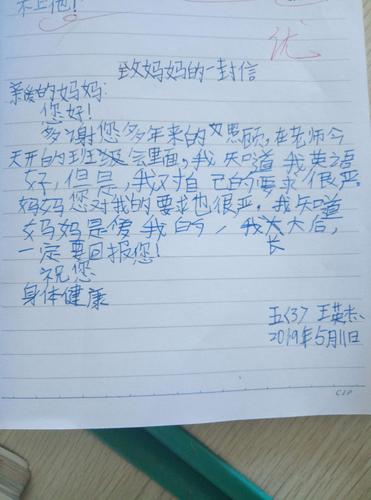 不上他!
优
致妈妈的一封信
亲爱的妈妈:
您好!
多谢您多年来的照顾,在老师今
天开的班级会里面,我知道我英语
好,但是,我对自己的要求很严
妈妈您对我的要求也很严。我知道
妈妈是爱我的,我长大后,
一定要回报您!
祝您
身体健康
五(3) 王英杰
2019年5月11日
CIP